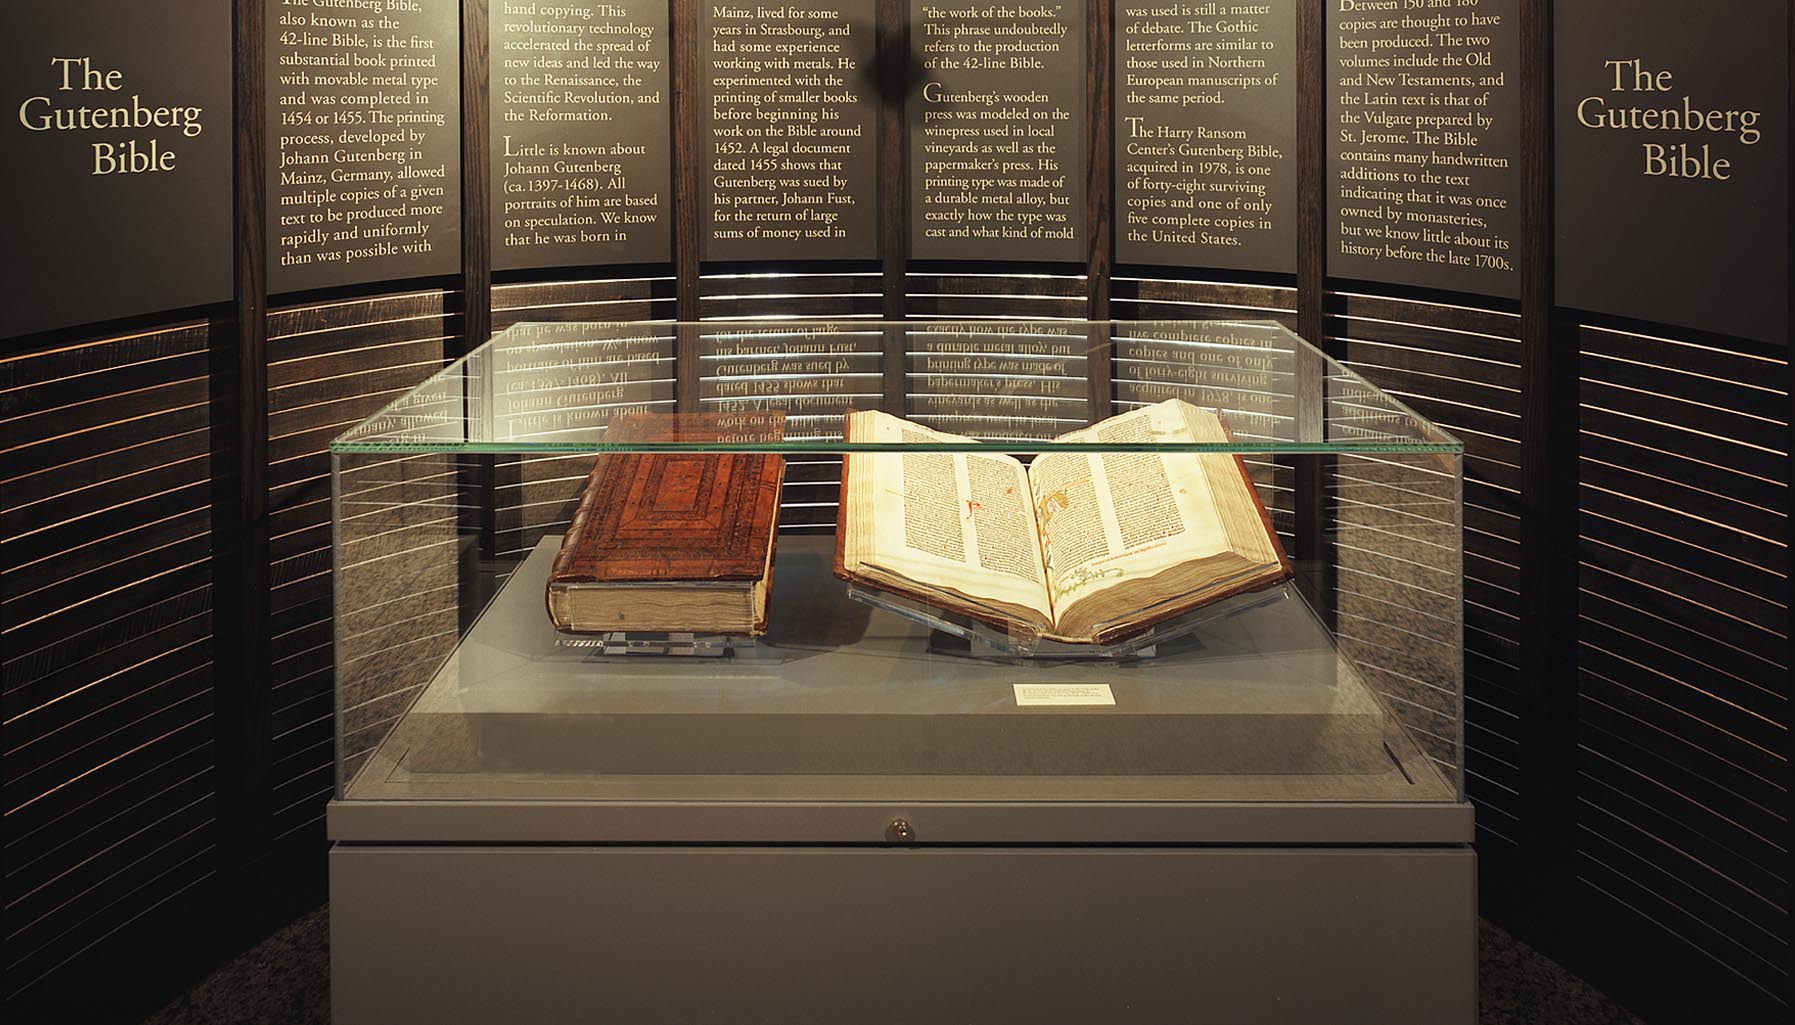 The
Gutenberg
Bible
The Gutenberg Bible,
also known as the
42-line Bible, is the first
substantial book printed
with movable metal type
and was completed in
1454 or 1455. The printing
process, developed by
Johann Gutenberg in
Mainz, Germany, allowed
multiple copies of a given
text to be produced more
rapidly and uniformly
than was possible with
hand copying. This
revolutionary technology
accelerated the spread of
new ideas and led the way
to the Renaissance, the
Scientific Revolution, and
the Reformation.
Little is known about
Johann Gutenberg
(ca. 1397-1468). All
portraits of him are based
on speculation. We know
that he was born in
Mainz, lived for some
years in Strasbourg, and
had some experience
working with metals. He
experimented with the
printing of smaller books
before beginning his
work on the Bible around
1452. A legal document
dated 1455 shows that
Gutenberg was sued by
his partner, Johann Fust,
for the return of large
sums of money used in
“the work of the books.”
This phrase undoubtedly
refers to the production
of the 42-line Bible.
Gutenberg's wooden
press was modeled on the
winepress used in local
vineyards as well as the
papermaker's press. His
printing type was made of
a durable metal alloy, but
exactly how the type was
cast and what kind of mold
was used is still a matter
of debate. The Gothic
letterforms are similar to
those used in Northern
European manuscripts of
the same period.
The Harry Ransom
Center's Gutenberg Bible,
acquired in 1978, is one
of forty-eight surviving
copies and one of only
five complete copies in
the United States.
Between 150 and 180
copies are thought to have
been produced. The two
volumes include the Old
and New Testaments, and
the Latin text is that of
the Vulgate prepared by
St. Jerome. The Bible
contains many handwritten
additions to the text
indicating that it was once
owned by monasteries,
but we know little about its
history before the late 1700s.
The
Gutenberg
Bible